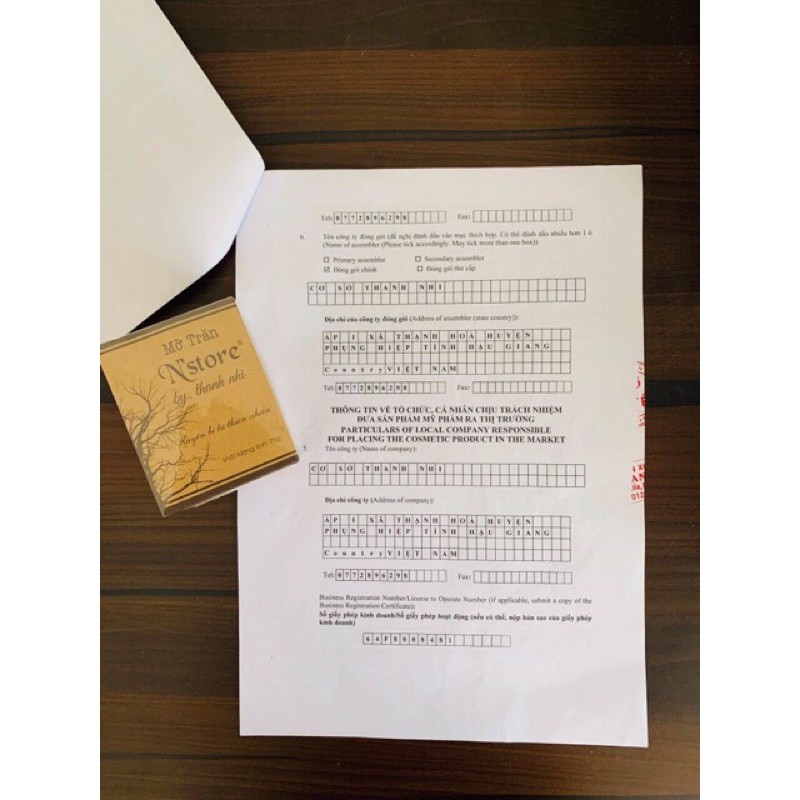 Tel: 0772896298 Fax:
6. Tên công ty đóng gói (đề nghị đánh dấu vào mục thích hợp. Có thể đánh dấu nhiều hơn 1 ô
(Name of assembler (Please tick accordingly. May tick more than one box)):
Primary assembler Secondary assembler
Đóng gói chính Đóng gói thứ cấp
CƠ SỞ THANH NHI
Địa chỉ của công ty đóng gói (Address of assembler (state country)):
ẤP 1 XÃ THẠNH HOÀ HUYỆN
PHỤNG HIỆP TỈNH HẬU GIANG
Country VIỆT NAM
Tel: 0772896298 Fax:
THÔNG TIN VỀ TỔ CHỨC, CÁ NHÂN CHỊU TRÁCH NHIỆM
ĐƯA SẢN PHẨM MỸ PHẨM RA THỊ TRƯỜNG
PARTICULARS OF LOCAL COMPANY RESPONSIBLE
FOR PLACING THE COSMETIC PRODUCT IN THE MARKET
7. Tên công ty (Name of company):
CƠ SỞ THANH NHI
Địa chỉ công ty (Address of company):
ẤP 1 XÃ THẠNH HOÀ HUYỆN
PHỤNG HIỆP TỈNH HẬU GIANG
Country VIỆT NAM
Tel: 0772896298 Fax:
Business Registration Number/License to Operate Number (if applicable, submit a copy of the
Business Registration Certificate):
Số giấy phép kinh doanh/Số giấy phép hoạt động (nếu có thể, nộp bản sao của giấy phép
kinh doanh)
64F8008481
Mỡ Trăn
N'store®
by. thanh nhi
Huyền bí từ thiên nhiên
Khối lượng tịnh: